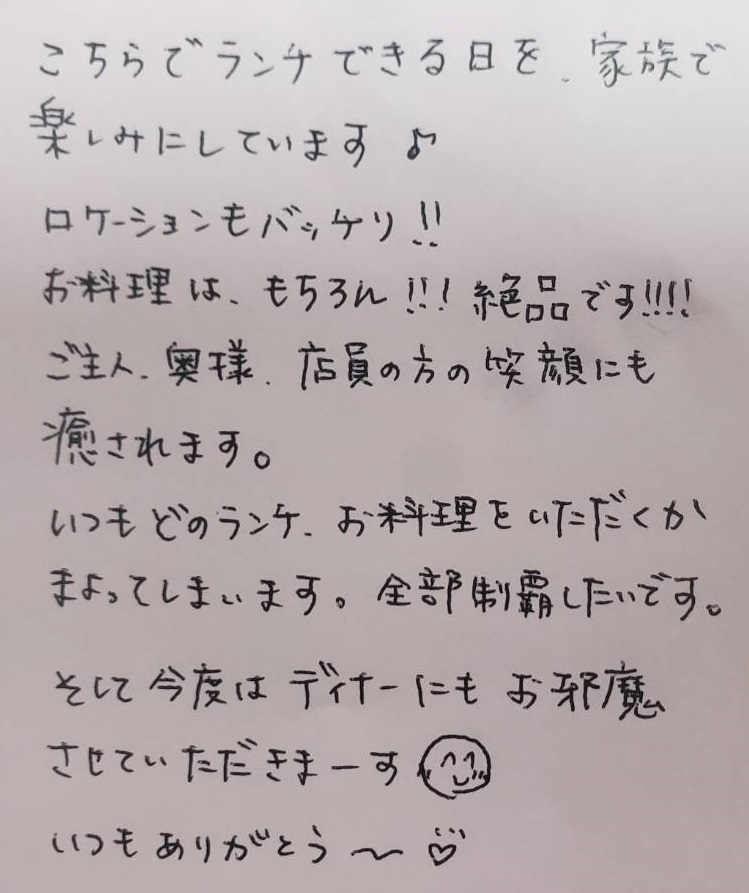 こちらでランチできる日を、家族で
楽しみにしています♪
ロケーションもバッチリ!!
お料理は、もちろん!!!絶品です!!!!
ご主人、奥様、店員の方の笑顔にも
癒されます。
いつもどのランチ、お料理をいただくか
まよってしまいます。全部制覇したいです。
そして今度はディナーにもお邪魔
させていただきまーす
いつもありがとう〜♡